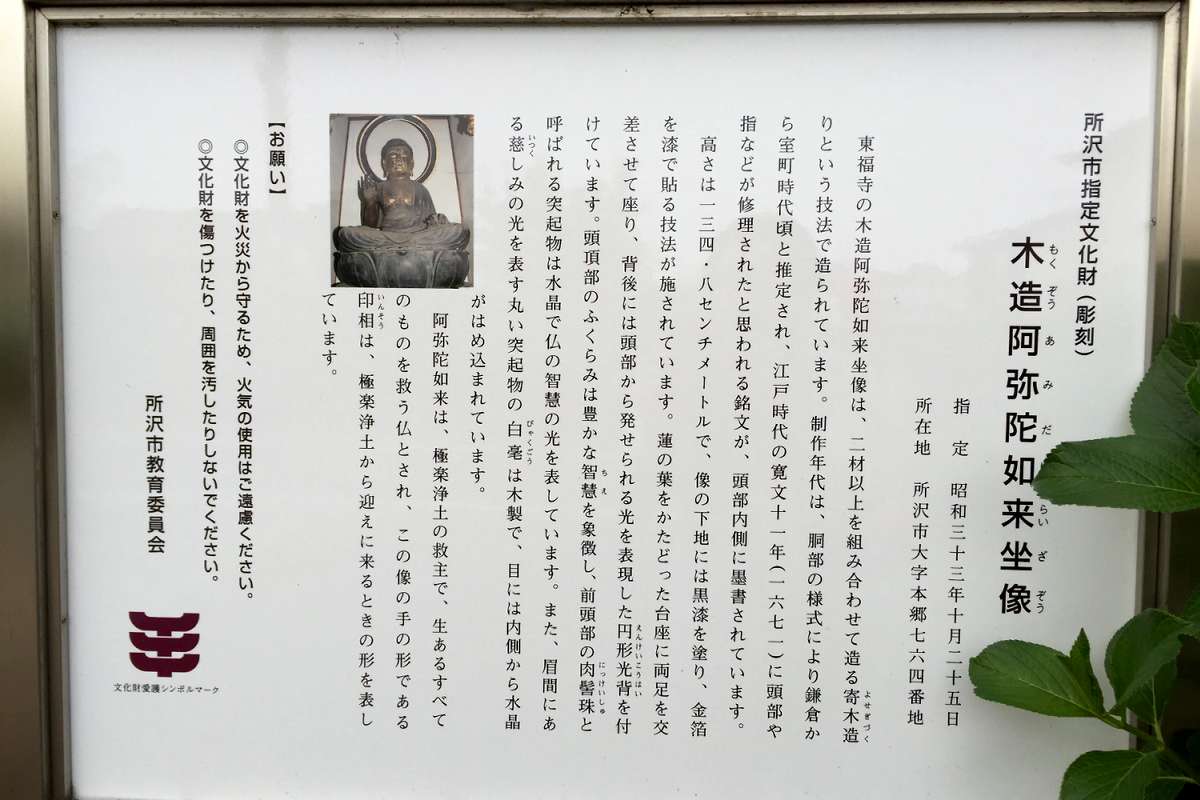 所沢市指定文化財（彫刻）
木造阿弥陀如来坐像
もくぞうあみだらいざぞう
指　定　昭和三十三年十月二十五日
所在地　所沢市大字本郷七六四番地
東福寺の木造阿弥陀如来坐像は、二材以上を組み合わせて造る寄木造
よせぎづく
りという技法で造られています。制作年代は、胴部の様式により鎌倉か
ら室町時代頃と推定され、江戸時代の寛文十一年（一六七一）に頭部や
指などが修理されたと思われる銘文が、頭部内側に墨書されています。
高さは一三四・八センチメートルで、像の下地には黒漆を塗り、金箔
を漆で貼る技法が施されています。蓮の葉をかたどった台座に両足を交
差させて座り、背後には頭部から発せられる光を表現した円形光背を付
えんけいこうはい
けています。頭頂部のふくらみは豊かな智慧を象徴し、前頭部の肉髻珠と
ちえ
にっけいしゅ
呼ばれる突起物は水晶で仏の智慧の光を表しています。また、眉間にあ
る慈しみの光を表す丸い突起物の白毫は木製で、目には内側から水晶
いつく
びゃくごう
がはめ込まれています。
阿弥陀如来は、極楽浄土の救主で、生あるすべて
のものを救う仏とされ、この像の手の形である
印相は、極楽浄土から迎えに来るときの形を表し
いんそう
ています。
【お願い】
◎文化財を火災から守るため、火気の使用はご遠慮ください。
◎文化財を傷つけたり、周囲を汚したりしないでください。
所沢市教育委員会
文化財愛護シンボルマーク